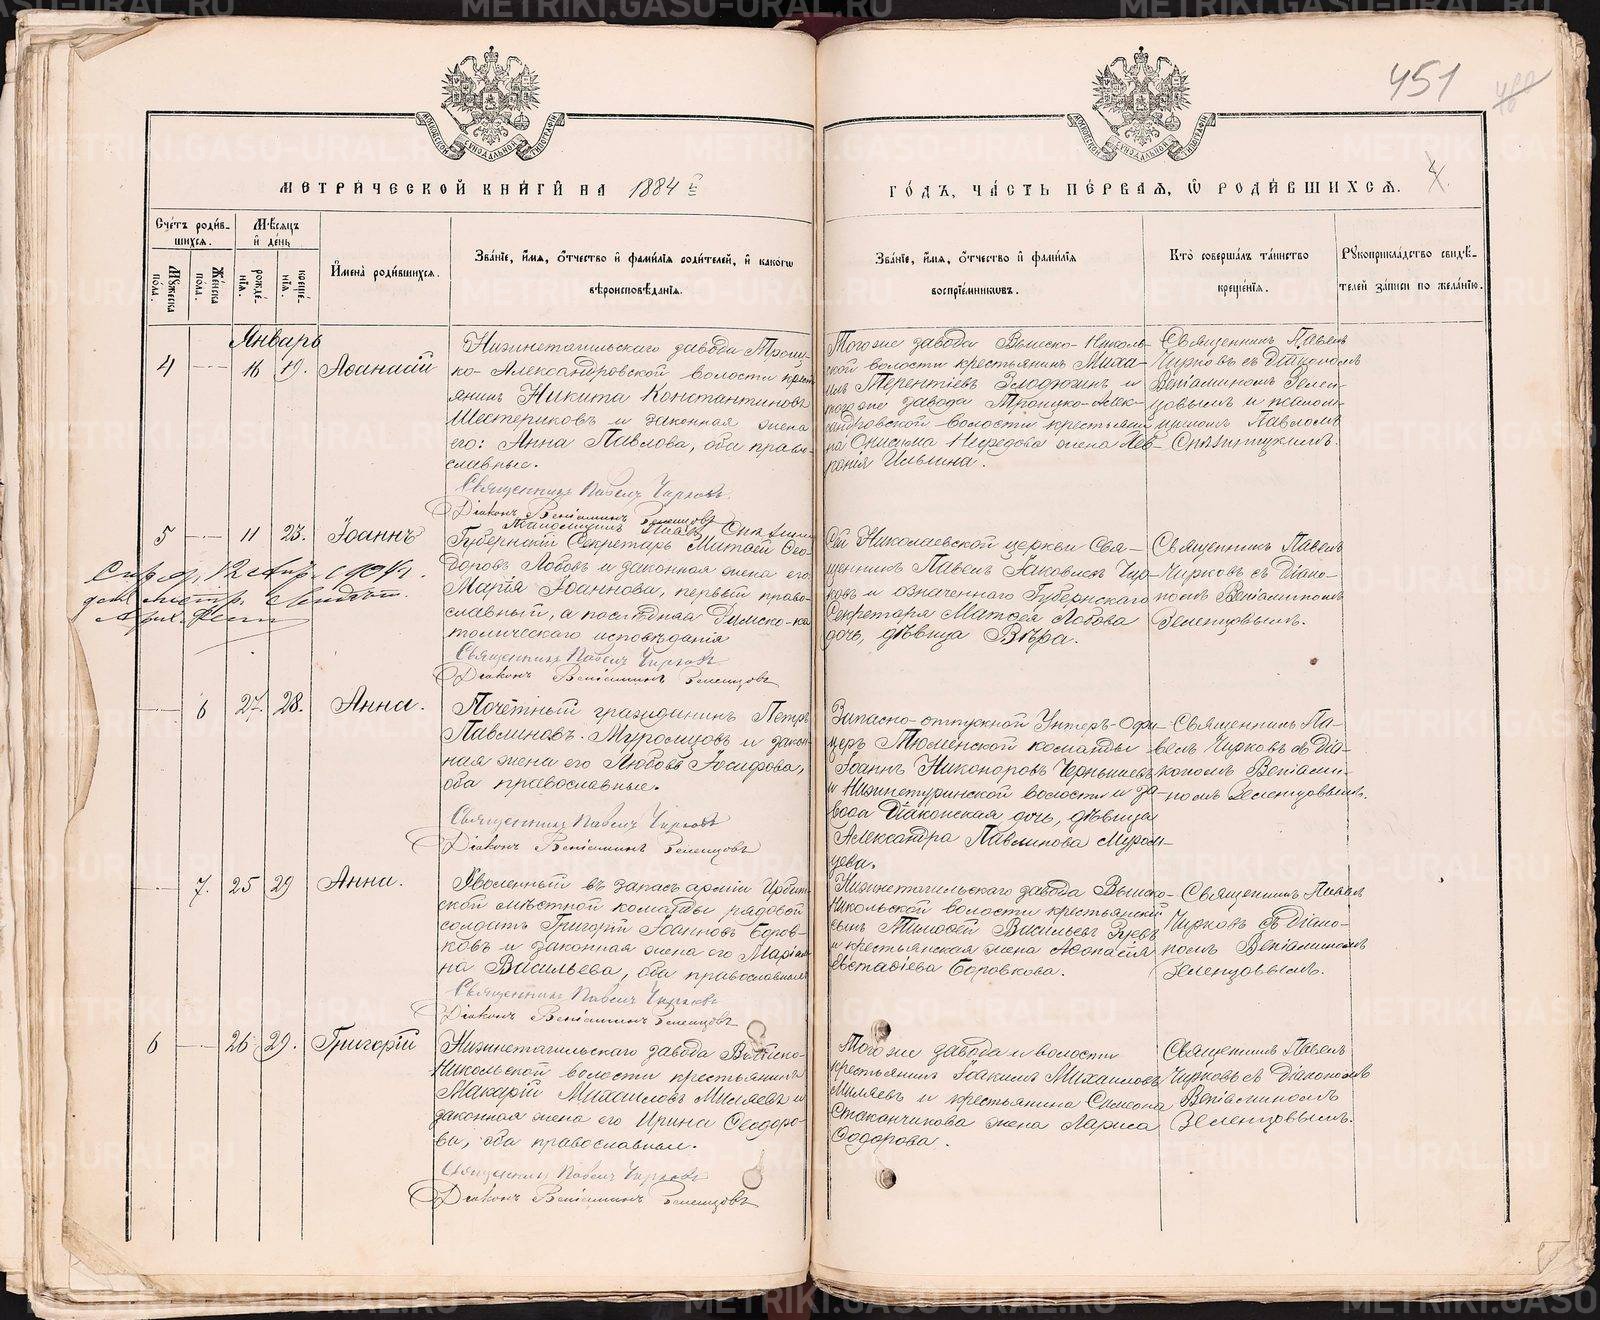 451
МЕТРИЧЕСКОЙ КНИГИ НА 1884 г.
ГОДЪ, ЧАСТЬ ПЕРВАЯ, Ѿ РОДИВШИХСЯ.
4.
Счетъ родившихся.
Мужеска пола.
Женска пола.
Мѣсяцъ и день
рожденія.
крещенія.
Имена родившихся.
Званіе, имя, отчество и фамилія родителей, и какого
вѣроисповѣданія.
Званіе, имя, отчество и фамилія
воспріемниковъ.
Кто совершалъ таинство
крещенія.
Рукоприкладство свидѣ-
телей записи по желанію.
Январь
4 16 19. Аѳанасій
Нижнетагильскаго завода Троиц-
ко-Александровской волости крест
янинъ Никита Константиновъ
Шестериковъ и законная жена
его: Анна Павлова, оба право-
славные.
Священникъ Павелъ Чирковъ
Діаконъ Веніаминъ Зеленцовъ
Того же завода Выиско-Николь-
ской волости крестьянинъ Миха-
илъ Терентіевъ и
того же завода Троицко-Алек-
сандровской волости крестьяни
на Онисима жена Фев-
ронія Ильина.
Священникъ Павелъ
Чирковъ съ Діакономъ
Веніаминомъ Зелен-
цовымъ и псалом-
щикомъ Павломъ
5 11 23. Іоаннъ
Губернскій Секретарь Матѳей Ѳео-
доровъ Лобовъ и законная жена его
Марія Іоаннова, первый право-
славный, а послѣдняя Римско-ка
толическаго исповѣданія
Священникъ Павелъ Чирковъ
Діаконъ Веніаминъ Зеленцовъ
Сей Николаевской церкви Свя-
щенникъ Павелъ Іаковлевъ Чир-
ковъ и означеннаго Губернскаго
Секретаря Матѳея Лобова
дочь, дѣвица Вѣра.
Священникъ Павелъ
Чирковъ съ Діако-
номъ Веніаминомъ
Зеленцовымъ.
6 27. 28. Анна.
Почетный гражданинъ Петръ
Павлиновъ Муромцовъ и закон-
ная жена его Любовь Іосифова,
оба православные.
Священникъ Павелъ Чирковъ
Діаконъ Веніаминъ Зеленцовъ
Запасно-отпускной Унтеръ-Офи-
церъ Тюменской команды
Іоаннъ Никоноровъ Чернышевъ
и Нижнетуринской волости и за-
вода Діаконская дочь, дѣвица
Александра Павлинова Муром-
цева.
Священникъ Па-
велъ Чирковъ съ Діа-
кономъ Веніами-
номъ Зеленцовымъ.
7. 25 29 Анна.
Уволенный въ запасъ арміи Ирбит-
ской мѣстной команды рядовой
солдатъ Григорій Іоанновъ Боров-
ковъ и законная жена его Маріам-
на Васильева, оба православные
Священникъ Павелъ Чирковъ
Діаконъ Веніаминъ Зеленцовъ
Нижнетагильскаго завода Выиско-
Никольской волости крестьянскій
сынъ Тимоѳей Васильевъ Зуевъ
и крестьянская жена Аѳанасія
Евстаѳіева Боровкова.
Священникъ Павелъ
Чирковъ съ Діако-
номъ Веніаминомъ
Зеленцовымъ.
6 26 29. Григорій
Нижнетагильскаго завода Выиско-
Никольской волости крестьянинъ
Макарій Михаиловъ Миляевъ и
законная жена его Ирина Ѳеодоро-
ва, оба православные.
Священникъ Павелъ Чирковъ
Діаконъ Веніаминъ Зеленцовъ
Того же завода и волости
крестьянинъ Іоакимъ Михаиловъ
Миляевъ и крестьянина Симеона
Стаканчикова жена Лариса
Ѳодорова.
Священникъ Павелъ
Чирковъ съ Діакономъ
Веніаминомъ
Зеленцовымъ.
METRIKI.GASO-URAL.RU